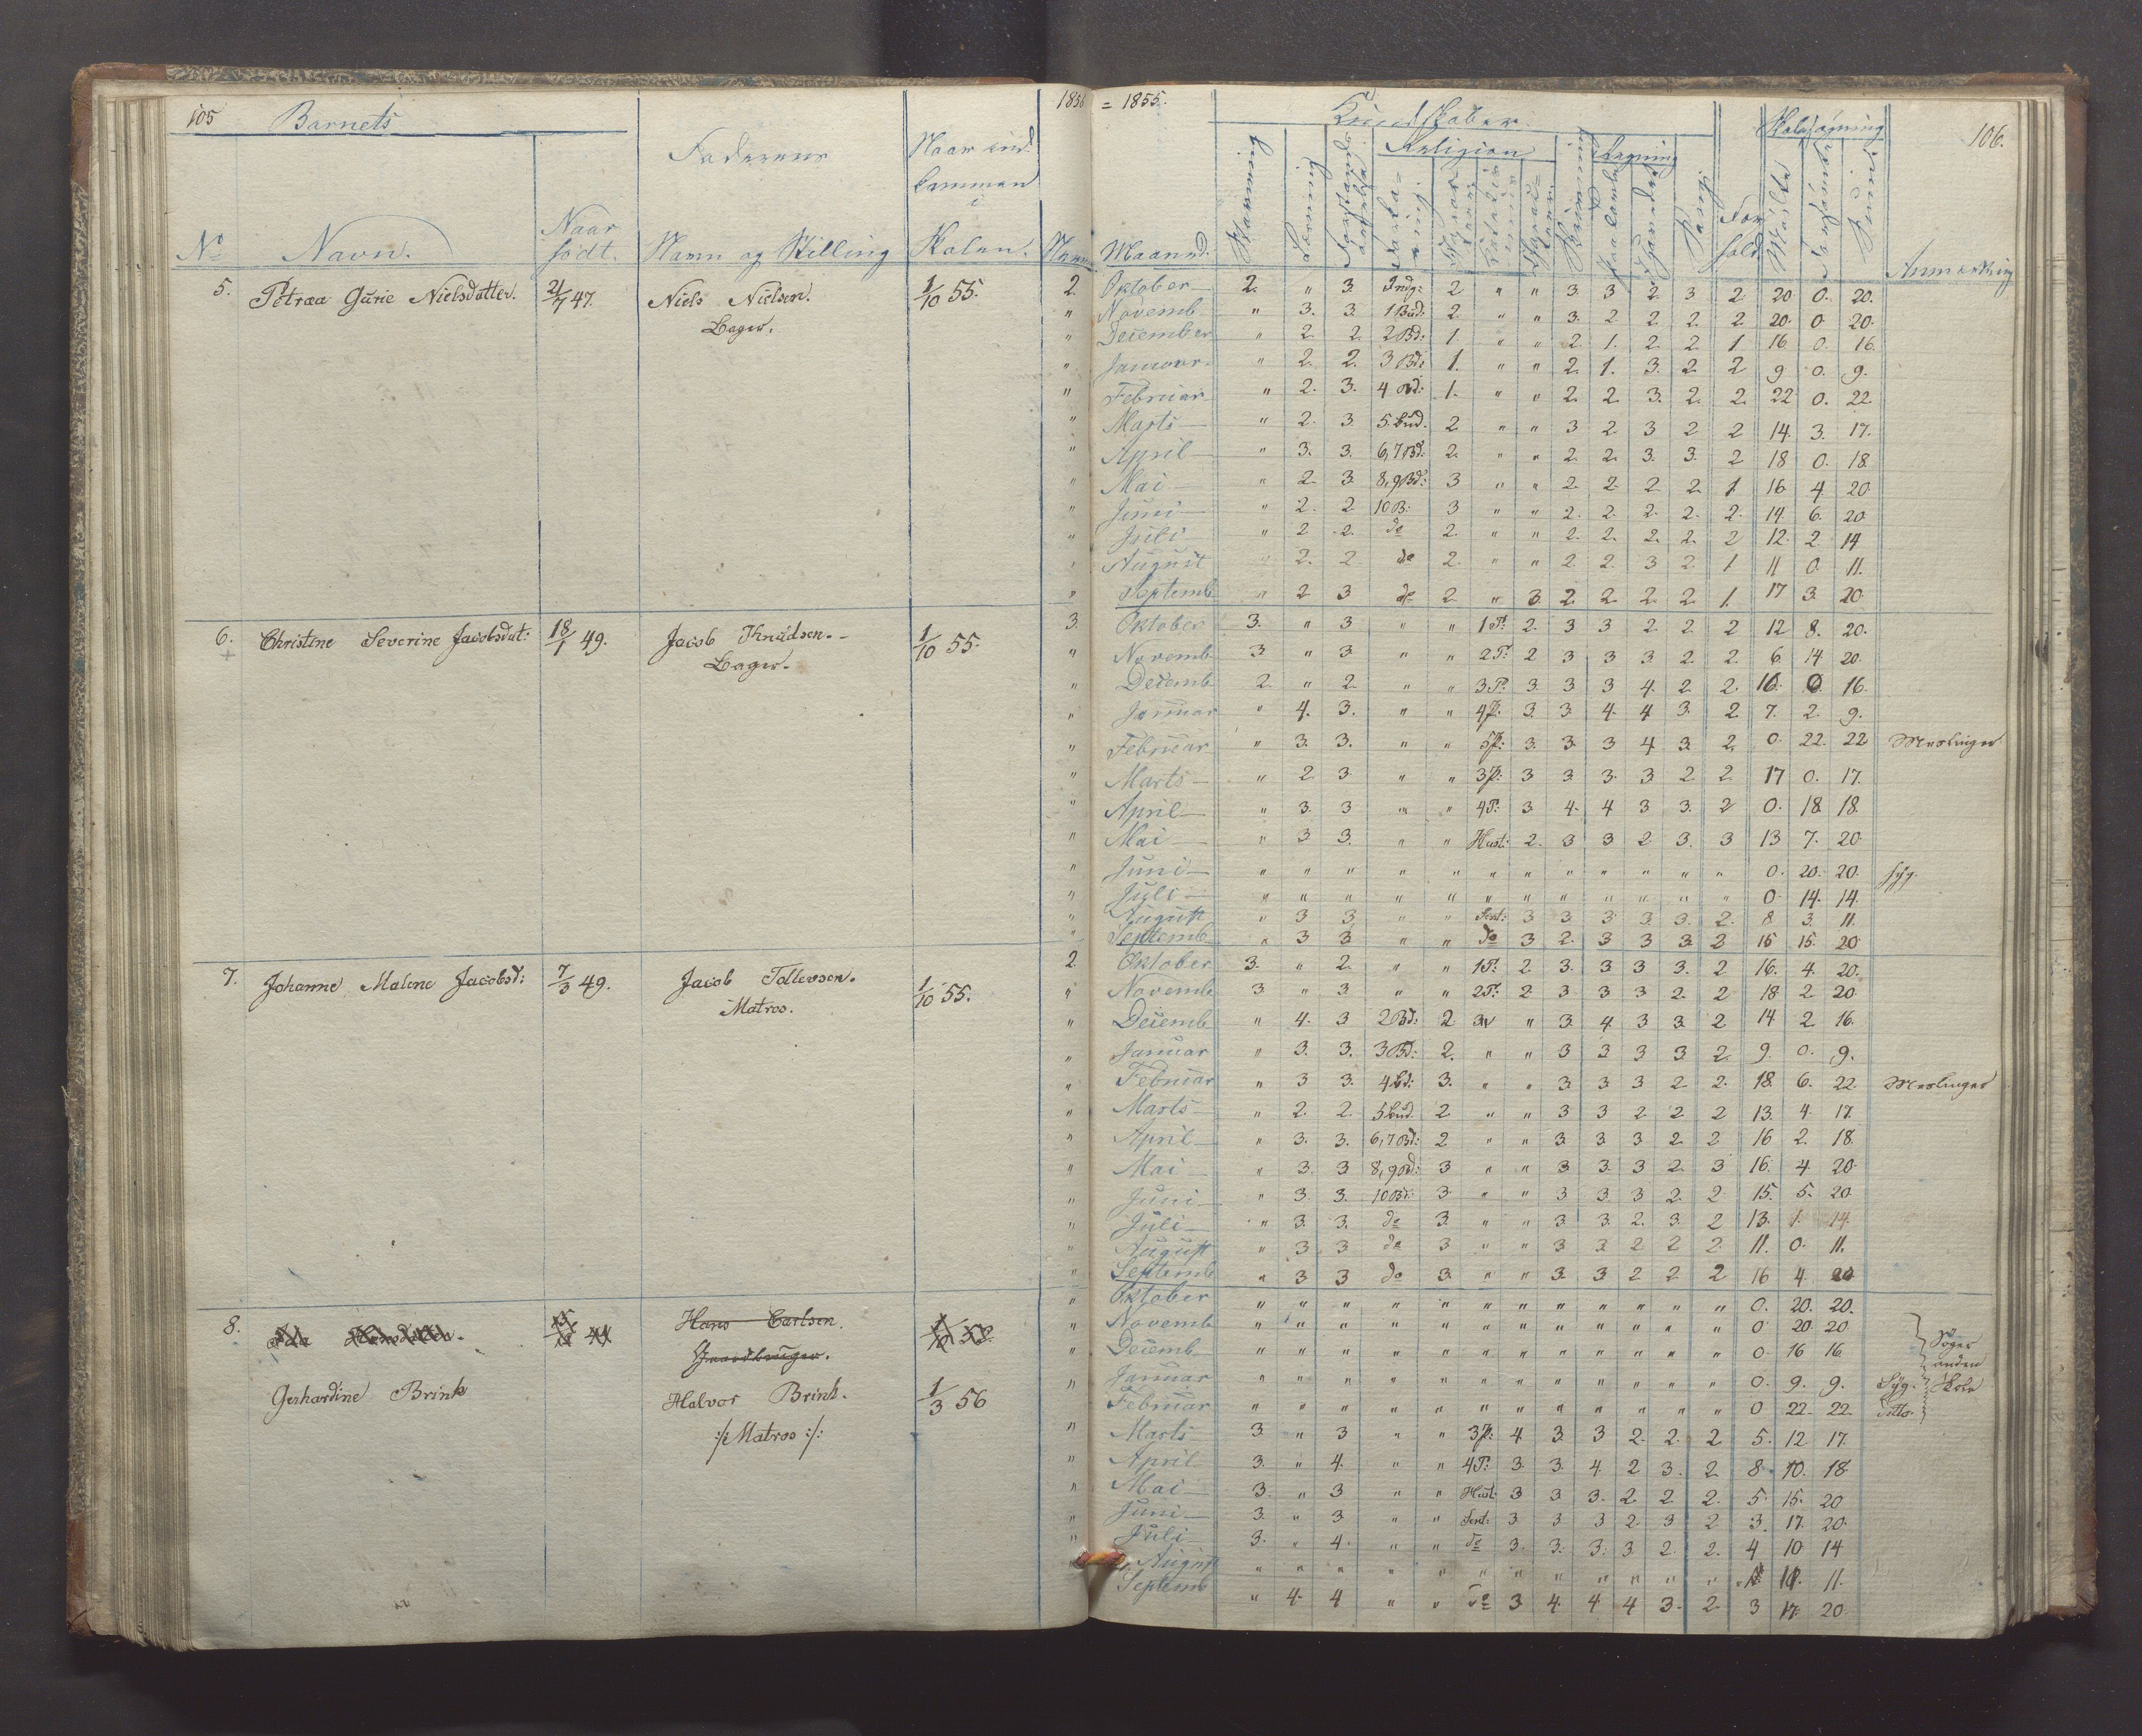 105 Barnets 1856 = 1855. Kundskaber. Skolesøgning 106.
Religion
Faderens Naar ind-
kommen
i
Naar
No Navn. født. Navn og Stilling Skolen. Maaned. Forhold Anmærkning
5. Petraa Gurie Nielsdatter. 21/7 47. Niels Nielsen. 1/10 55. 2. Oktober 2. " 3. Indg: 2 " " 3. 3 2. 3 2. 20. 0. 20.
Bager. " Novemb " 3. 3. 1 Bud: 2. " " 3. 2 2 2. 2. 20. 0 20.
" December " 2. 2. 2 Bd: 1. " " 2. 1. 2. 2 1 16. 0. 16.
" Januar. " 2. 2. 3 Bd: 1. " " 2. 1. 3. 2. 2 9 0. 9.
" Februar " 2. 3. 4 Bd: 1. " " 2. 2. 3. 2. 2. 22 0. 22.
" Marts " 2. 3. 5. Bud. 2 " " 3 2 3 2 2 14. 3. 17.
" April " 3. 3. 6,7 Bd: 2. " " 2. 2. 3. 3. 2 18 0. 18.
" Mai " 2. 3. 8,9 Bd: 3 " " 2. 2. 2 2. 1. 16. 4. 20.
" Juni " 2. 2 10 B: 3 " " 2. 2. 2. 2. 2. 14. 6. 20
" Juli " 2 2. do 2. " " 2. 2. 2. 2. 2 12. 2. 14
" August " 2. 2. do 2. " " 2 2. 3 2. 1 11 0. 11.
" Septemb " 2 3 do 2. " 3. 2. 2 2. 2 1. 17 3. 20.
6. Christine Severine Jacobsdat: 18/1 49. Jacob Knudsen. 1/10 55. 3. Oktober 3. " 3 " " 1 P: 2. 3 3 2. 2. 2 12 8. 20.
Bager. " Novemb 3 " 3 " " 2 P: 2 3 3 3 2. 2. 6. 14 20.
" Decemb 2. " 2. " " 3. P: 3. 3 3 4. 2. 2. 16. 0. 16.
" Januar " 4. 3. " " 4 P: 3. 3. 4. 4 3. 2. 7. 2. 9.
" Februar " 3. 3. " " 5 P: 3. 3. 3 4 3. 2. 0. 22. 22 Meslinger
" Marts " 2 3 " " 3 P: 3 3. 3. 3 2 2. 17 0. 17.
" April " 3. 3 " " 4 P: 3. 4. 4 3 3. 2 0. 18. 18.
" Mai " 3 3. " " Hust: 2. 3 3 2 3. 3 13 7. 20.
" Juni " " " " " " " " " " " " 0. 20. 20. Syg.
" Juli " " " " " " " " " " " " 0. 14. 14.
" August " 3 3 " " Sent: 3 3 3 3 3. 2. 8 3. 11.
" Septemb " 3 3 " " do 3 2. 3 3 3. 2 15 15. 20
7. Johanne Malene Jacobsd: 7/3 49. Jacob Tollevsen. 1/10 55. 2. Oktober 3. " 2. " " 1 P: 2. 3. 3 3 3. 2 16. 4. 20.
Matros. " Novemb 3 " 3 " " 2 P: 2 3 3 3 2. 2 18 2 20
" Decemb " 4. 3 2 Bd: 2 " 3. 4 3 3. 2 14 2 16.
" Januar " 3. 3. 3 Bd: 2. " " 3 3 3 3 2. 9. 0. 9.
" Februar " 3 3. 4 Bd: 3. " " 3. 3 3 2 2. 18. 6. 22. Meslinger
" Marts " 2. 2. 5 Bud. 2 " " 3 3 2 2 2 13. 4. 17.
" April " 3. 3. 6,7 Bd: 2 " " 3. 3. 3 2. 2 16 2. 18.
" Mai " 3. 3 8,9 Bd: 3 " " 3 3. 3 2. 3 16. 4 20.
" Juni " 3. 3. 10 Bd: 3. " " 3 3. 3 2. 2. 15. 5. 20
" Juli " 3. 3. do 3. " " 3. 3. 2. 3. 2 13. 1. 14.
" August " 3. 3 do 3 " " 3 3 2 2 2. 11. 0. 11.
" Septemb " 3 3 do 3. " " 3. 3 2 2 2 16 4. 20
8. Hans Carlsen. " Oktober " " " " " " " " " " " " 0. 20. 20.
Gaardbruger. " Novemb " " " " " " " " " " " " 0 20. 20
" Decemb " " " " " " " " " " " " 0. 16 16. Søger
anden
Skole
Gerhardine Brink Halvor Brink. 1/3 56 Januar " " " " " " " " " " " " 0. 9. 9. Syg.
:/: Matros :/: " Februar " " " " " " " " " " " " 0 22. 22. Ditto.
" Marts 3. " 3 " " 3 P: 4 3. 3 2. 2. 2 5. 12. 17.
" April 3. " 4. " " 4 P: 3. 3. 4. 2 3. 2. 8. 10. 18.
" Mai 3. " 3 " " Hust: 3 3 3. 2. 2. 2. 5. 15. 20
" Juni 3. " 3 " " Sent: 3. 3 3 2. 3 2 3. 17. 20.
" Juli 3. " 4. " " do 3. 3. 3. 3. 2. 2. 4 10. 14
" August " " " " " " " " " " " " 11. 11.
Septemb " 4. 4 " " do 3. 4. 4 4 3. 2. 3 17. 20.